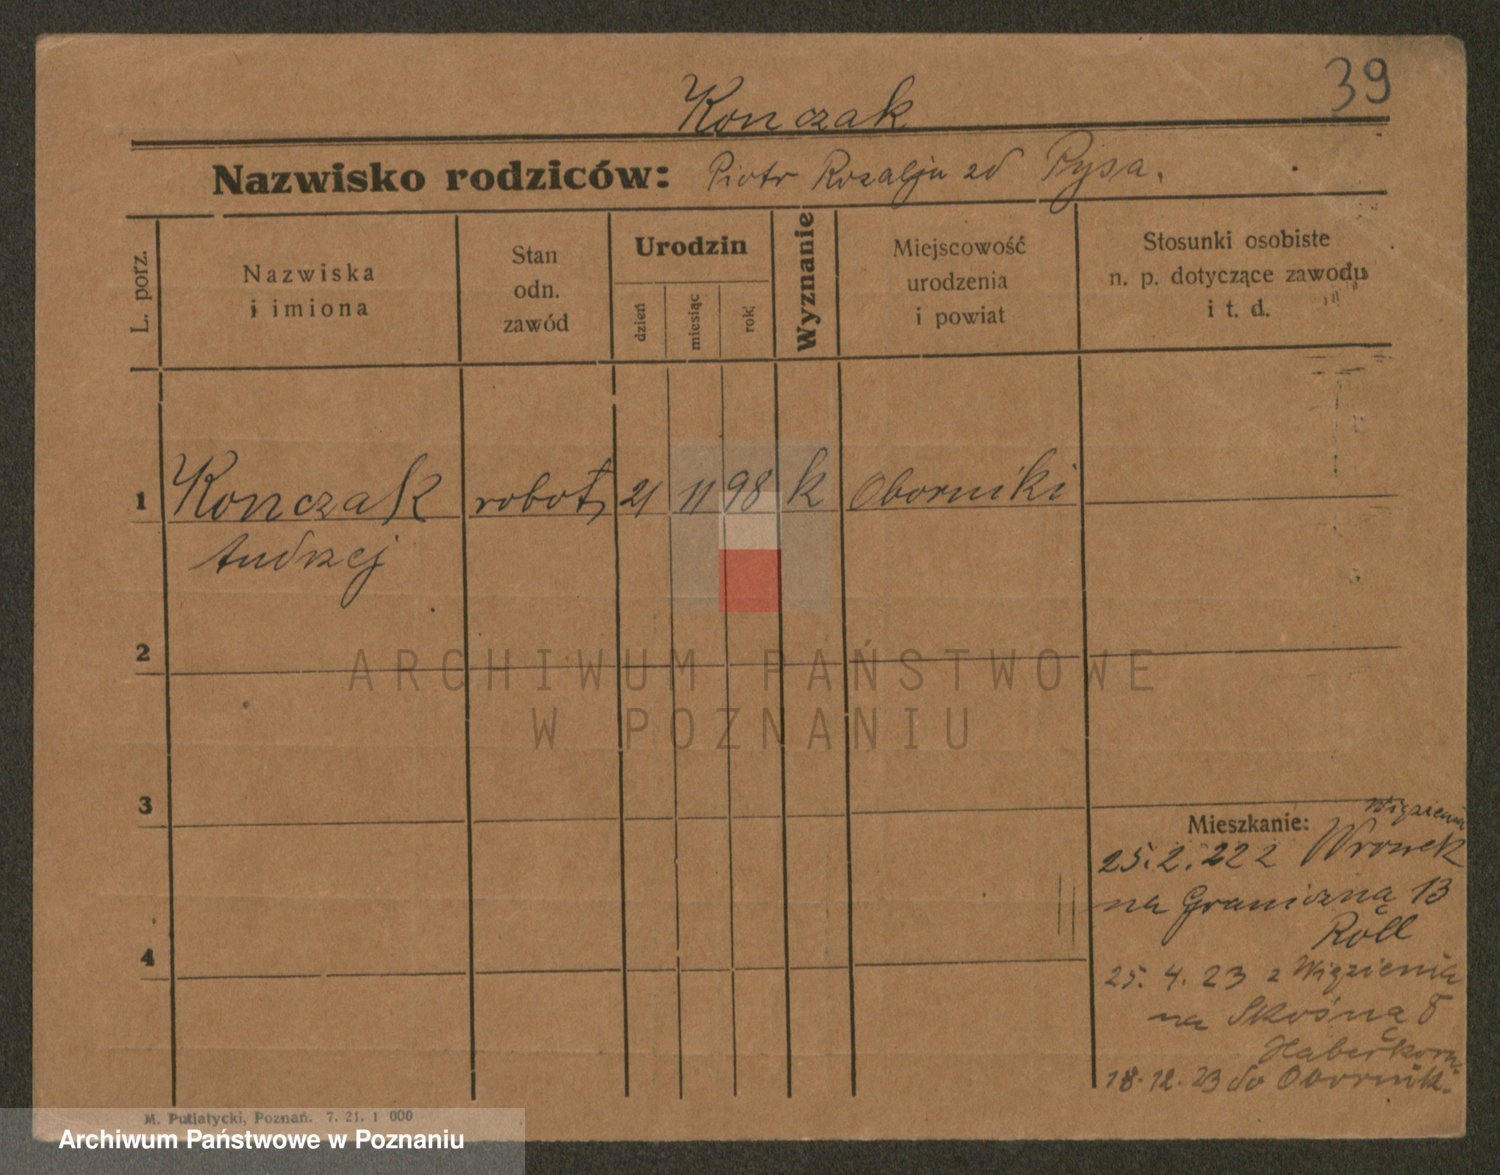 39
Konczak
Nazwisko rodziców: Piotr Rozalja zd Pysa.
L. porz.
Nazwiska
i imiona
Stan
odn.
zawód
Urodzin
dzień
miesiąc
rok
Wyznanie
Miejscowość
urodzenia
i powiat
Stosunki osobiste
n. p. dotyczące zawodu
i t. d.
1 Konczak robot, 21 11 98 k Oborniki
Andrzej
ARCHIWUM PAŃSTWOWE
W POZNANIU
2
3
4
Mieszkanie: Więzienia
25.2.22 z Wronek
na Graniczną 13
Roll
25.4.23 z Więzienia
na Skośną 8
18.12.23 do Obornik.
M. Putiatycki, Poznań. 7. 21. 1 000
Archiwum Państwowe w Poznaniu